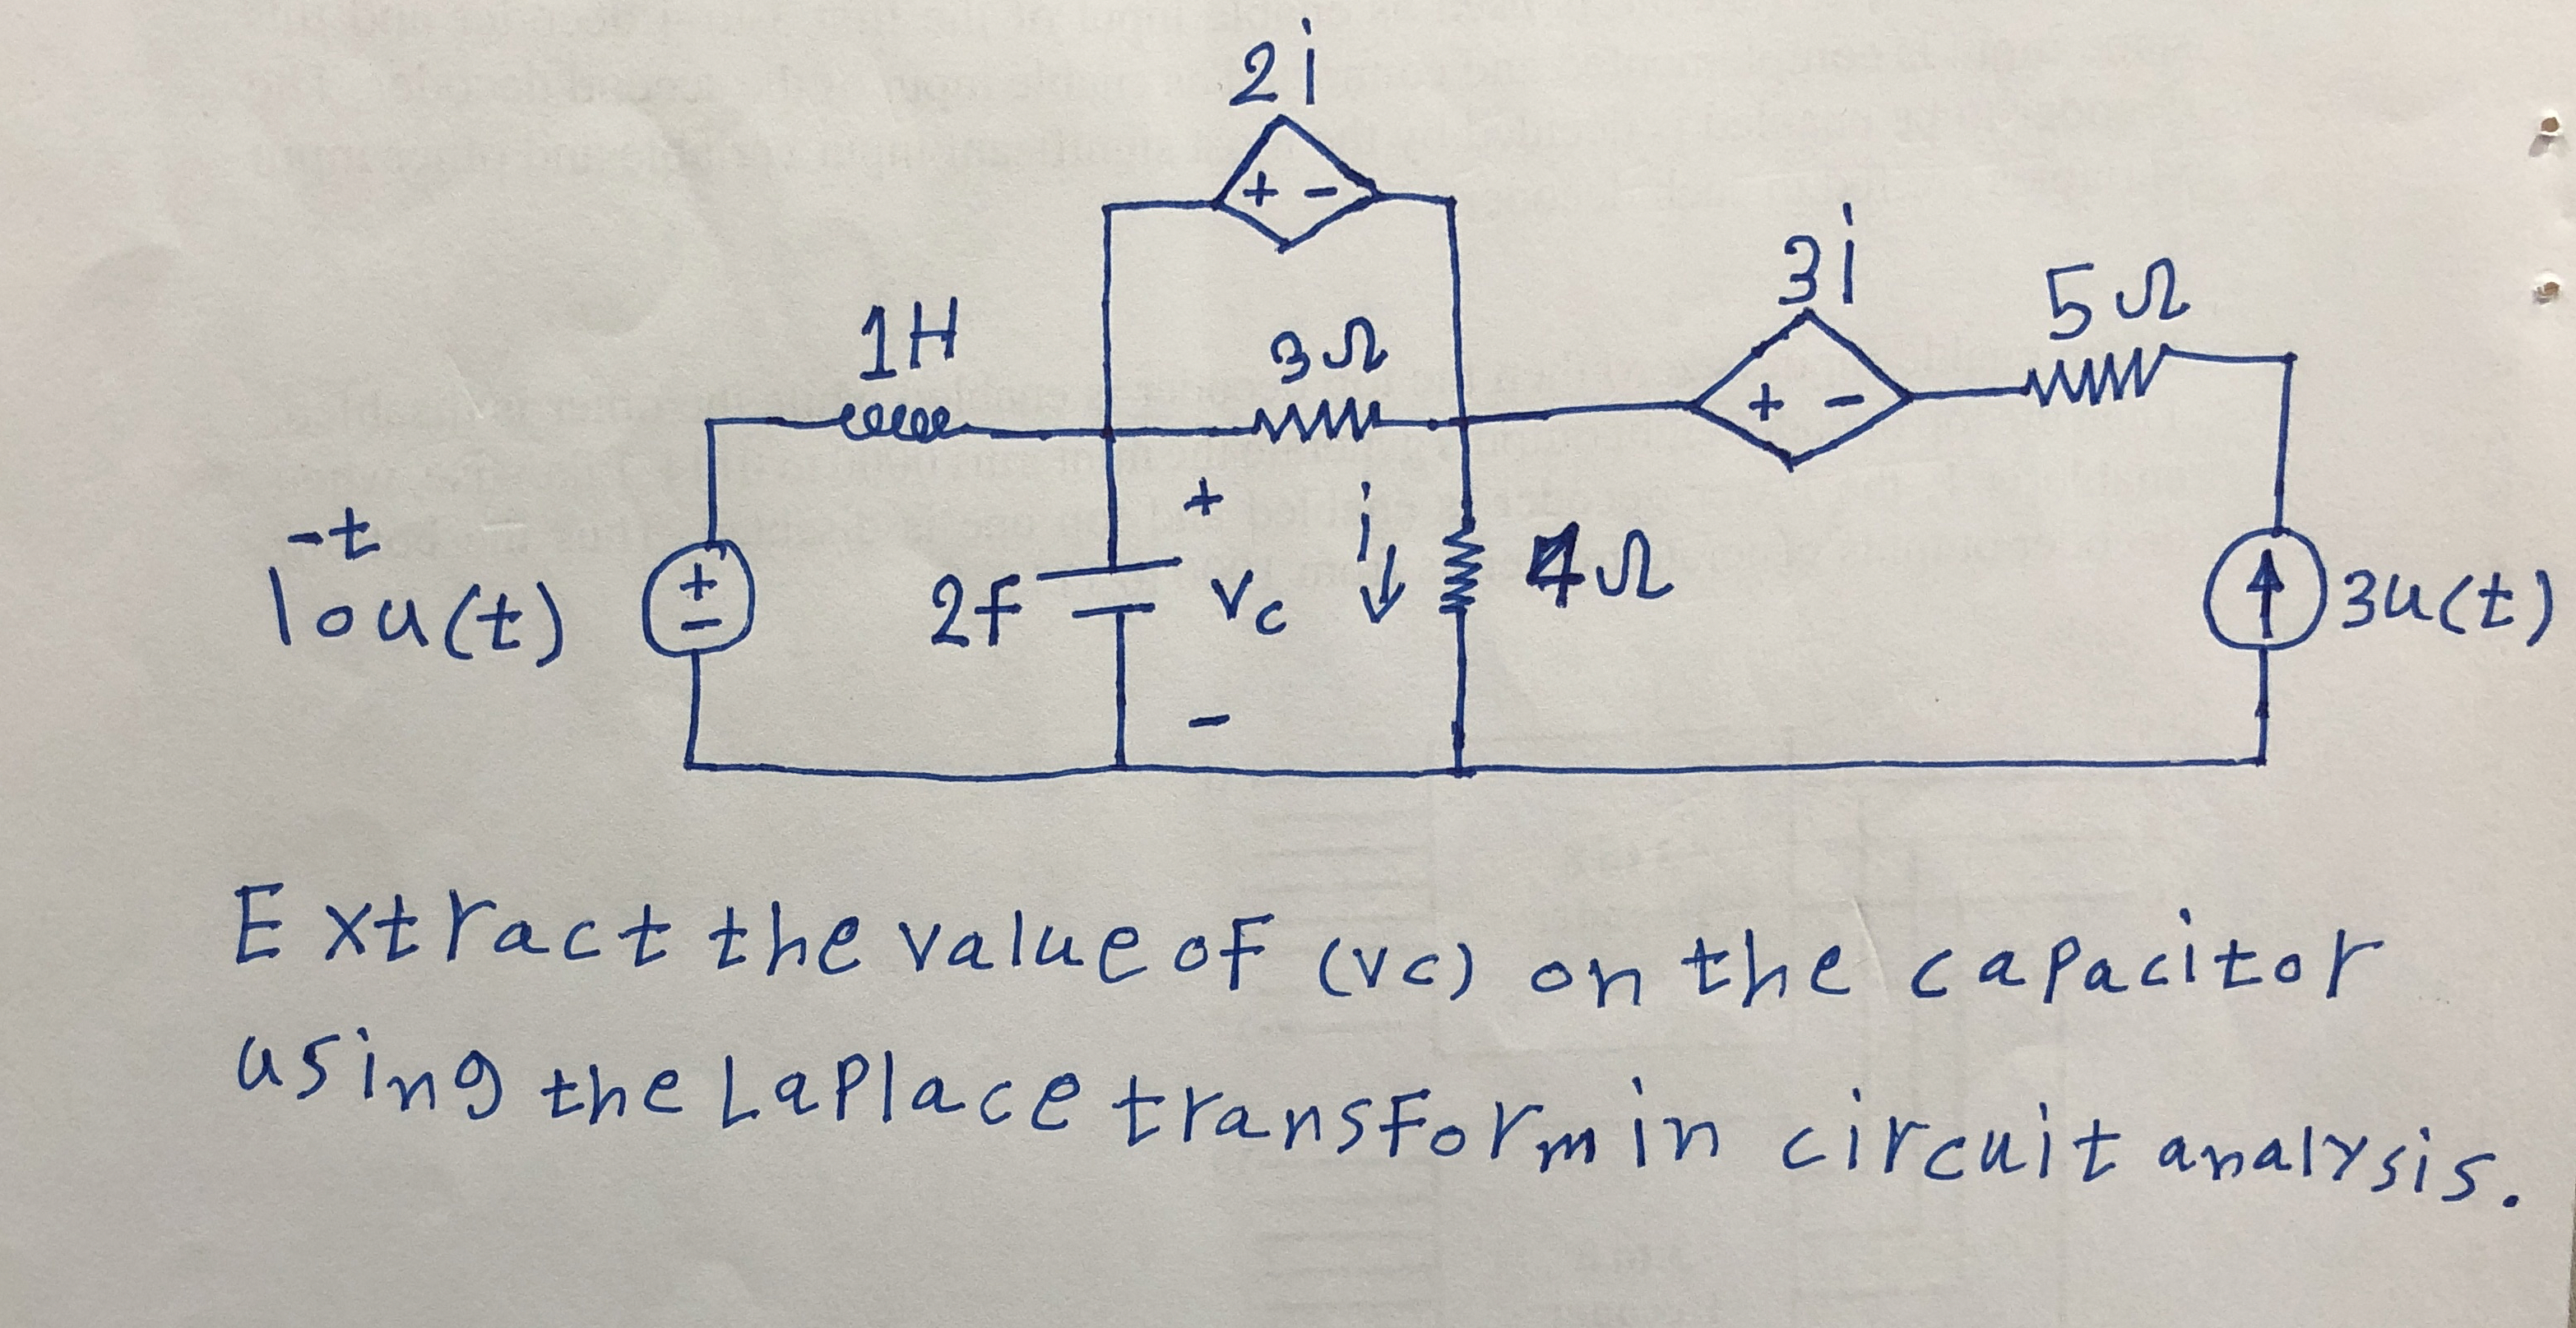 2i
3i
5Ω
1H
3Ω
+ -
+ -
-t
10u(t)
+
-
2f
+
Vc
-
i
4Ω
3u(t)
Extract the value of (vc) on the capacitor
using the Laplace transform in circuit analysis.